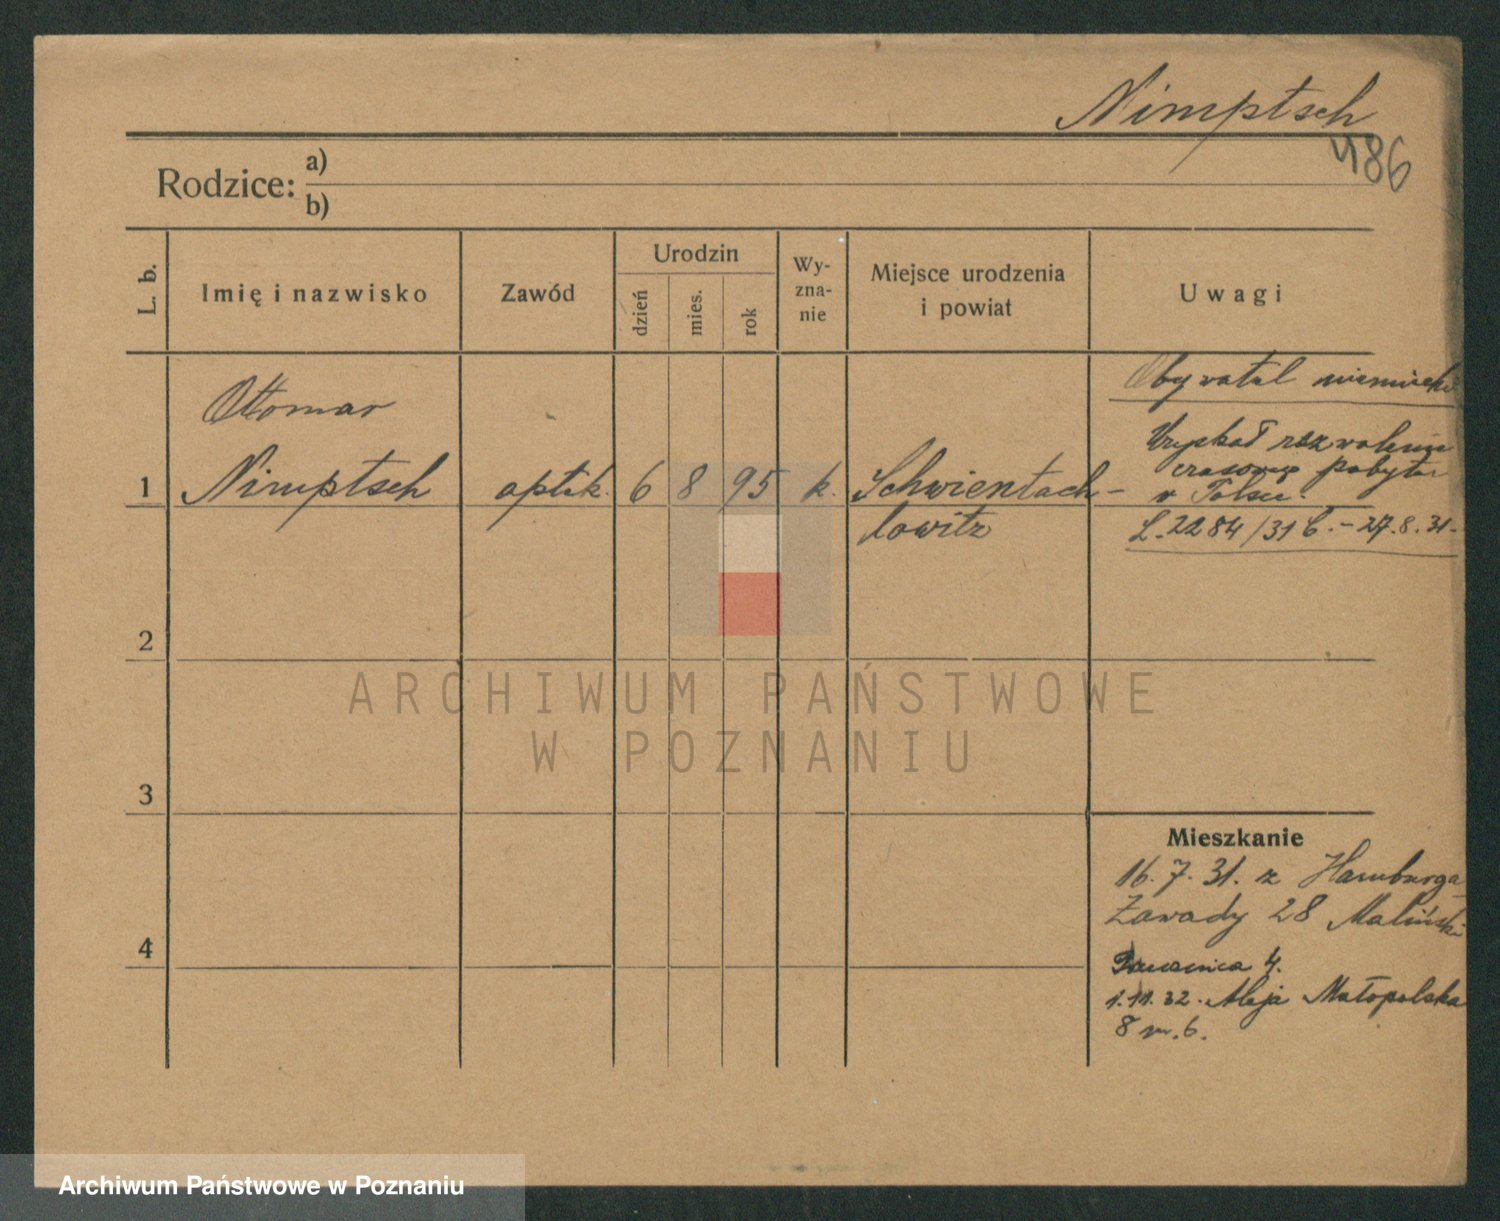 Nimptsch
486
Rodzice: a)
b)
L. b.
Imię i nazwisko
Zawód
Urodzin
dzień
mies.
rok
Wy-
zna-
nie
Miejsce urodzenia
i powiat
Uwagi
Obywatel niemiecki
Uzyskał zezwolenie
czasowego pobytu
w Polsce.
L. 2284/31 C. - 27.8.31.
Ottomar
1 Nimptsch optyk. 6 8 95 k. Schwientach-
lowitz
2
3
4
Mieszkanie
16. 7. 31. z Hamburga
Zawady 28 Maliński
4.
1.11.32. Aleja Małopolska
8 m. 6.
ARCHIWUM PAŃSTWOWE
W POZNANIU
Archiwum Państwowe w Poznaniu